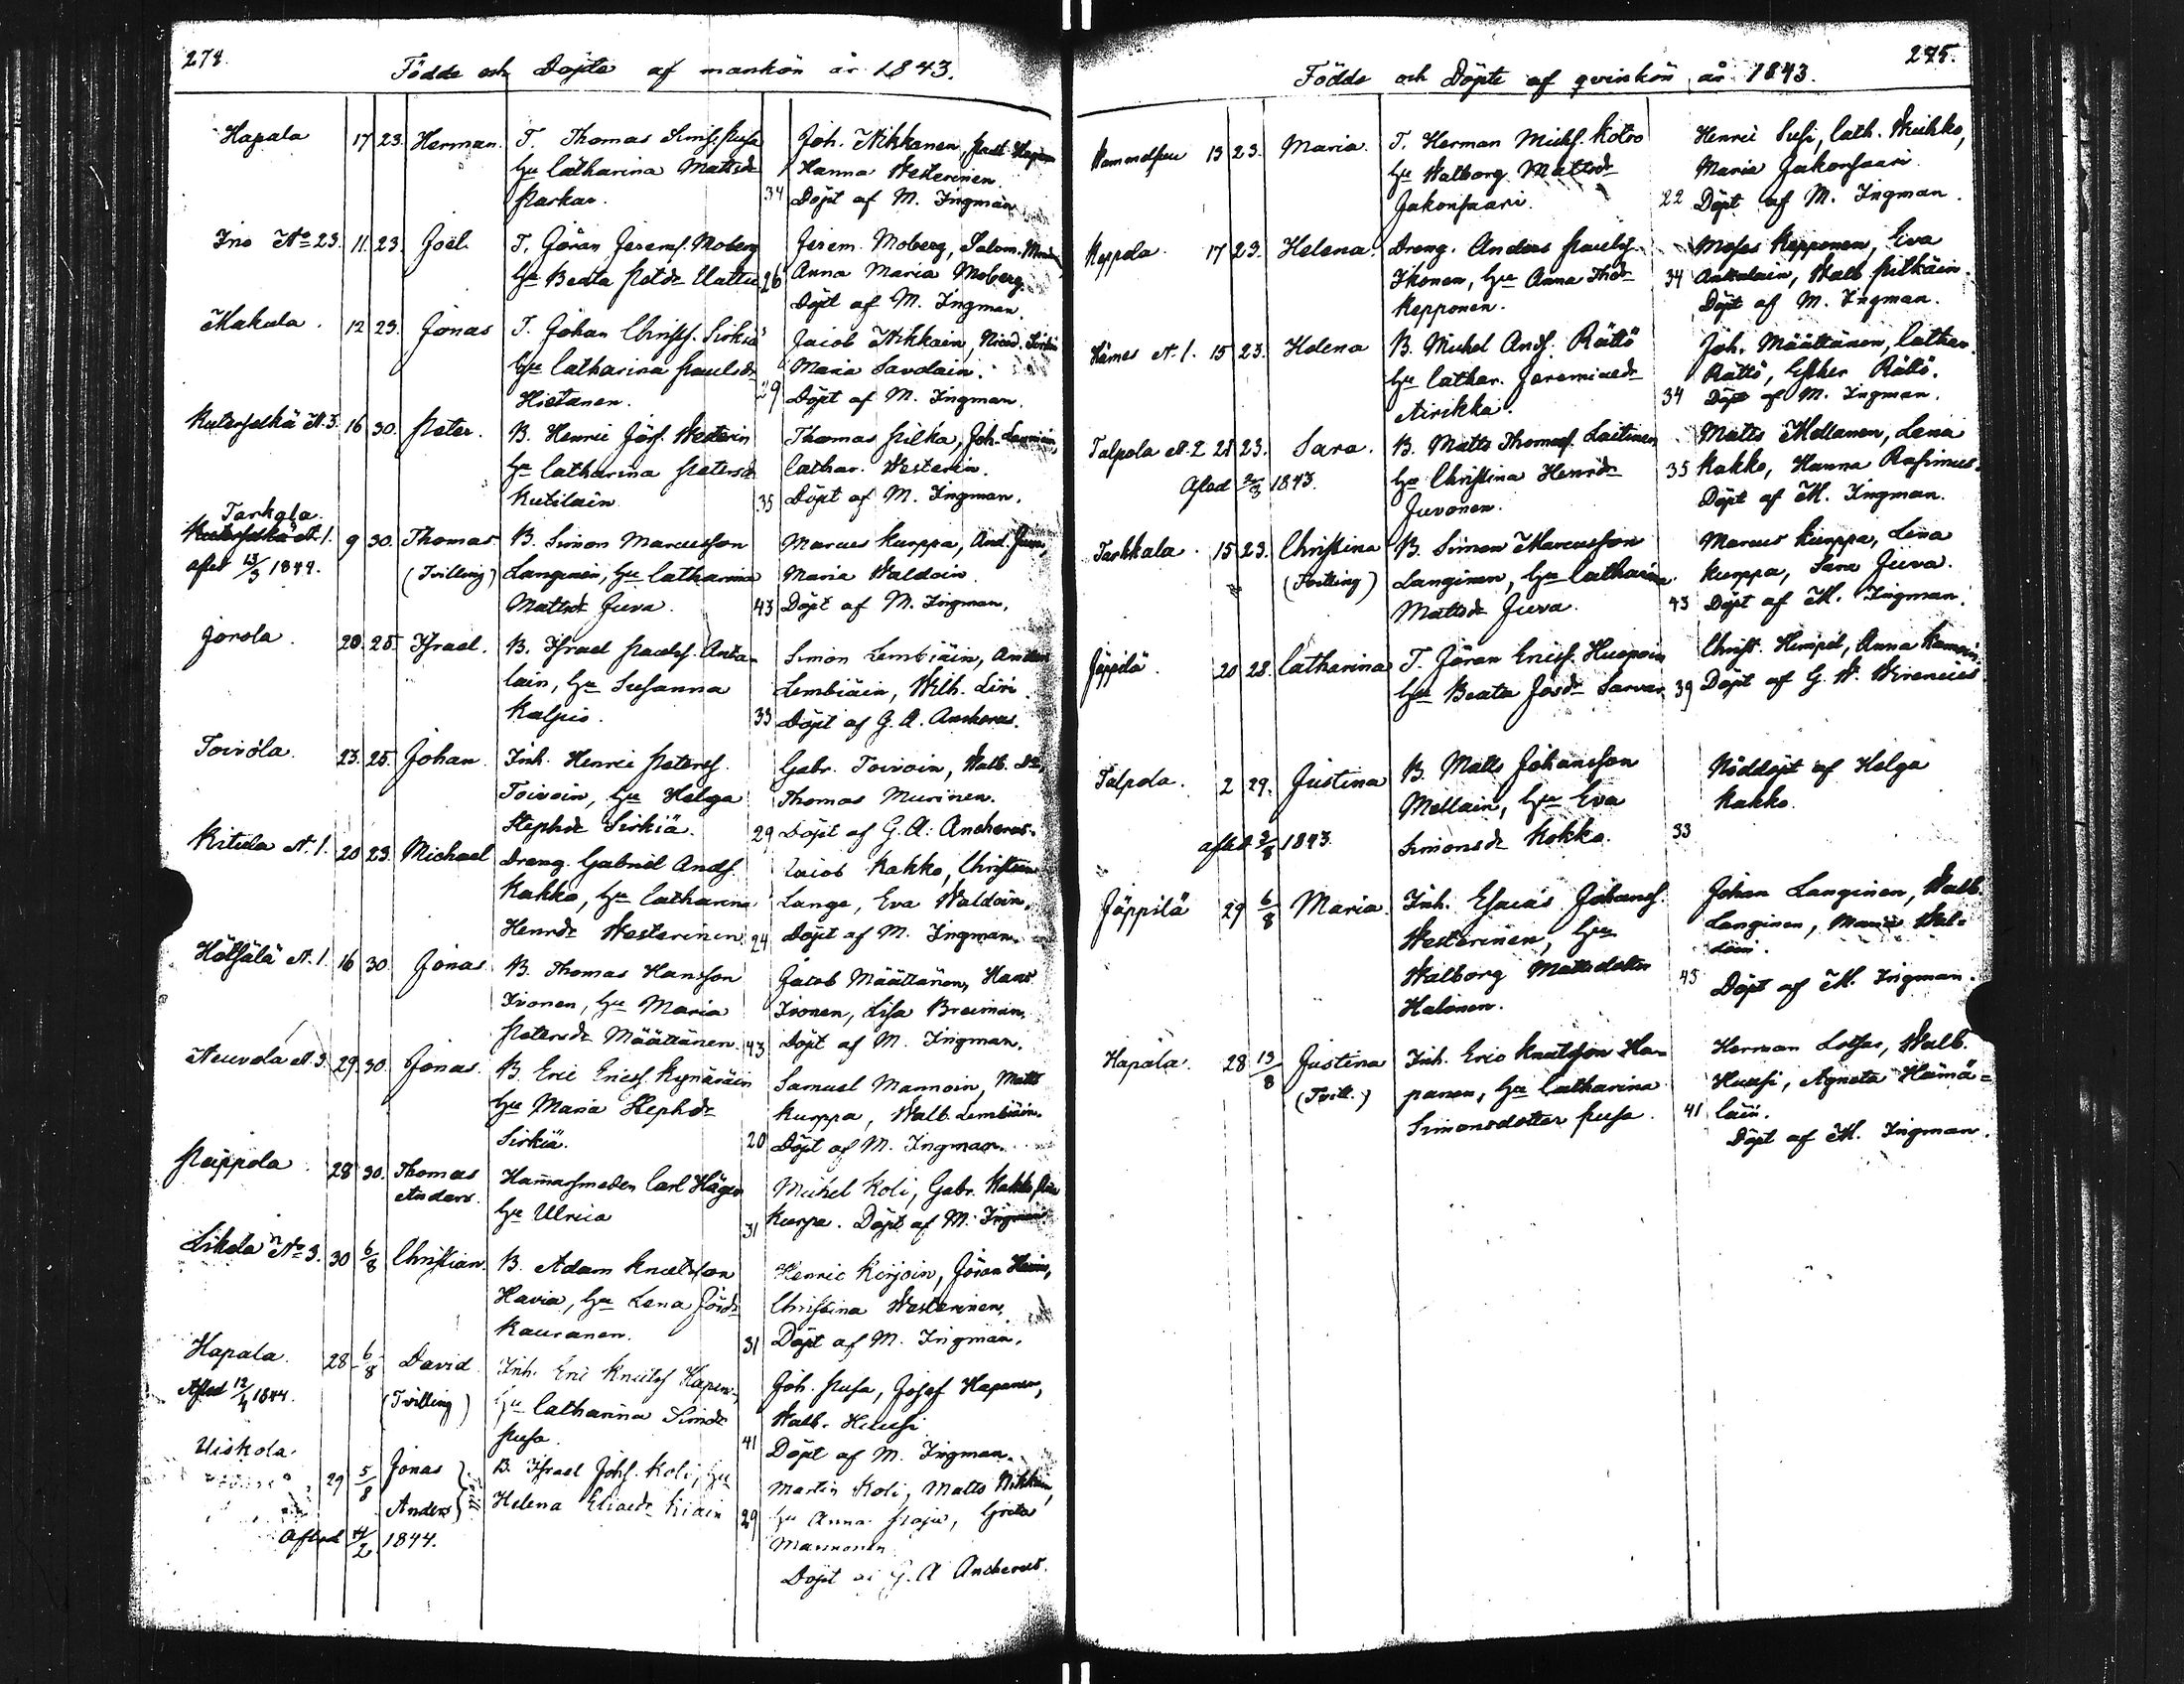 274.
Födde och Döpte af mankön år 1843.
Hapala 17 23. Herman. T. Thomas Sims. Pusa Joh. Nikkanen,
Hu Catharina Mattsdr Hanna Westerinen.
Parkar. 34 Döpt af M. Ingman.
Ino No 23. 11. 23. Joel T. Göran Jeremf. Moberg Jerem. Moberg, Salom.
Hu Beata Petdr Uattu 26 Anna Maria Moberg.
Döpt af M. Ingman.
Makula. 12 23. Jonas T. Johan Christs. Sirkiä Jacob Nikkain, Nicod. Sirkiä
Hu Catharina Paulsdr Maria Savolain.
Hietanen. 29 Döpt af M. Ingman.
Kuterselkä N. 3. 16 30. Peter. B. Henric Jörs. Westerin Thomas Pilka, Joh.
Hu Catharina Petersdr Cathar. Westerin.
Kutilain 35 Döpt af M. Ingman.
Tarkala.
Kuterselkä N. 1. 9 30. Thomas B. Simon Marcusson Marcus Kurppa, And. Juva,
afled 13/3 1844. (Tvilling) Langinen, Hu Catharina Maria Waldoin
Mattsdr Juva. 43 Döpt af M. Ingman.
Jorola. 20. 25. Israel. B. Israel Paulsf. Anta- Simon Lembiäin, Anders
lain, Hu Susanna Lembiäin, Wilh. Liri.
Kalpio. 33 Döpt af G. A. Ancherus.
Toivola. 23. 25. Johan. Inh. Henric Petersf. Gabr. Toivoin, Walb. Do,
Toivoin, Hu Helga Thomas Murinen.
Stephdr Sirkiä. 29 Döpt af G. A. Ancherus.
Kitula N. 1. 20 23. Michael Dreng. Gabriel Andf. Jacob Kakko, Christian
Kakko, Hu Catharina Lange, Eva Waldoin,
Henrdr Westerinen 24 Döpt af M. Ingman.
Hötsälä N. 1. 16 30 Jonas B. Thomas Hansson Jacob Määttänen, Hans
Ivonen, Hu Maria Ivonen, Lisa Breiman.
Petersdr Määttänen. 43 Döpt af M. Ingman.
Neuvola N. 3. 29. 30. Jonas. B. Eric Ericsf. Kynäräin Samuel Mannoin, Matts
Hu Maria Stephdr Kurppa, Walb. Lembiäin.
Sirkiä. 20 Döpt af M. Ingman.
Pamppola 28 30. Thomas Hamarsmeden Carl Hägen Michel Koli, Gabr. Kakko
Anders. Hu Ulrica 31 Kurpa. Döpt af M. Ingman
Likola No 3. 30 6/8 Christian. B. Adam Knutsson Henric Kirjoin, Jöran
Havia, Hu Lena Jörsdr Christina Westerinen.
Kauranen. 31 Döpt af M. Ingman.
Hapala. 28 6/8 David Inh. Eric Knutsf Hapan, Joh. Pusa, Josef Hapanen,
Afled 12/4 1844. (Tvilling) Hu Catharina Simdr Walb. Huusi
Pusa 41 Döpt af M. Ingman.
Uiskola. 29 5/8 Jonas B. Israel Johs. Koli, Hu Martin Koli, Matts Nikkain,
Anders Helena Eliasdr Kiain 29 Hu Anna Paju, Greta
Afled 4/2 1844. Mannonen
Döpt af G. A Ancherus.
275.
Födde och Döpte af qvinkön år 1843.
Wammelsuu 13 23. Maria. T. Herman Michs. Kotro Henric Susi, Cath. Kuikko,
Hu Walborg Mattsdr Maria Jakonsaari.
Jakonsaari. 22 Döpt af M. Ingman.
Keppola. 17 23. Helena. Dreng. Anders Paulsf. Moses Kepponen, Eva
Ikonen, Hu Anna Thodr 34 Antalain, Walb Pilkäin.
Kepponen. Döpt af M. Ingman.
Hämes N. 1. 15 23. Helena B. Michel Andf. Rättö Joh. Määttänen, Cathar.
Hu Cathar. Jeremiaedr Rättö, Esther Rättö.
Airikka. 34 Döpt af M. Ingman.
Talpola N. 2 21 23. Sara. B. Matts Thomasf. Laitinen Matts Mellanen, Lena
Afled 2/3 1843. Hu Christina Henrdr 35 Kakko, Hanna Rasimus.
Juvonen. Döpt af M. Ingman.
Tarkkala. 15 23. Christina B. Simon Marcusson Marcus Kurppa, Lena
(Tvilling) Langinen, Hu Catharina Kurppa, Sara Juva.
Mattsdr Juva. 43 Döpt af M. Ingman.
Jäppilä. 20 28. Catharina T. Jöran Ericsf. Huopoin Christ. Himpel, Anna
Hu Beata Jörsdr Sarvar 39 Döpt af G. W. Wirenius
Talpola. 2 29. Justina B. Matts Johansson Nöddöpt af Helga
Mellain, Hu Eva Kakko.
afled 3/8 1843. Simonsdr Kokko. 33
Jäppilä 29 6/8 Maria. Inh. Esaias Johansf. Johan Langinen, Walb.
Westerinen, Hu Langinen, Maria Wal-
Walborg Mattsdotter doin.
Halonen. 45 Döpt af M. Ingman.
Hapala. 28 13/8 Justina Inh. Eric Knutsson Ha- Herman Lotsar, Walb.
(Tvill.) panen, Hu Catharina Huusi, Agneta Hämä-
Simonsdotter Pusa. 41 lain.
Döpt af M. Ingman.